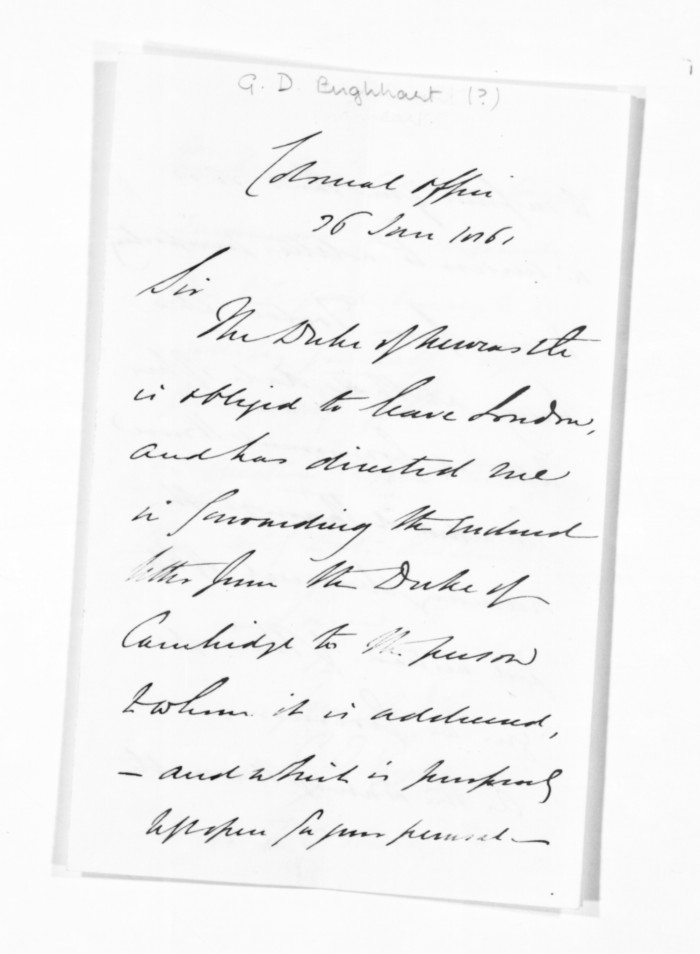 G. D. Enghheart (?)
Colonial Office
26 Jan 1861
Sir
The Duke of Newcastle
is obliged to leave London,
and has directed me
in forwarding the enclosed
letter from the Duke of
Cambridge to the person
to whom it is addressed,
– and which is purposely
left open for your perusal –